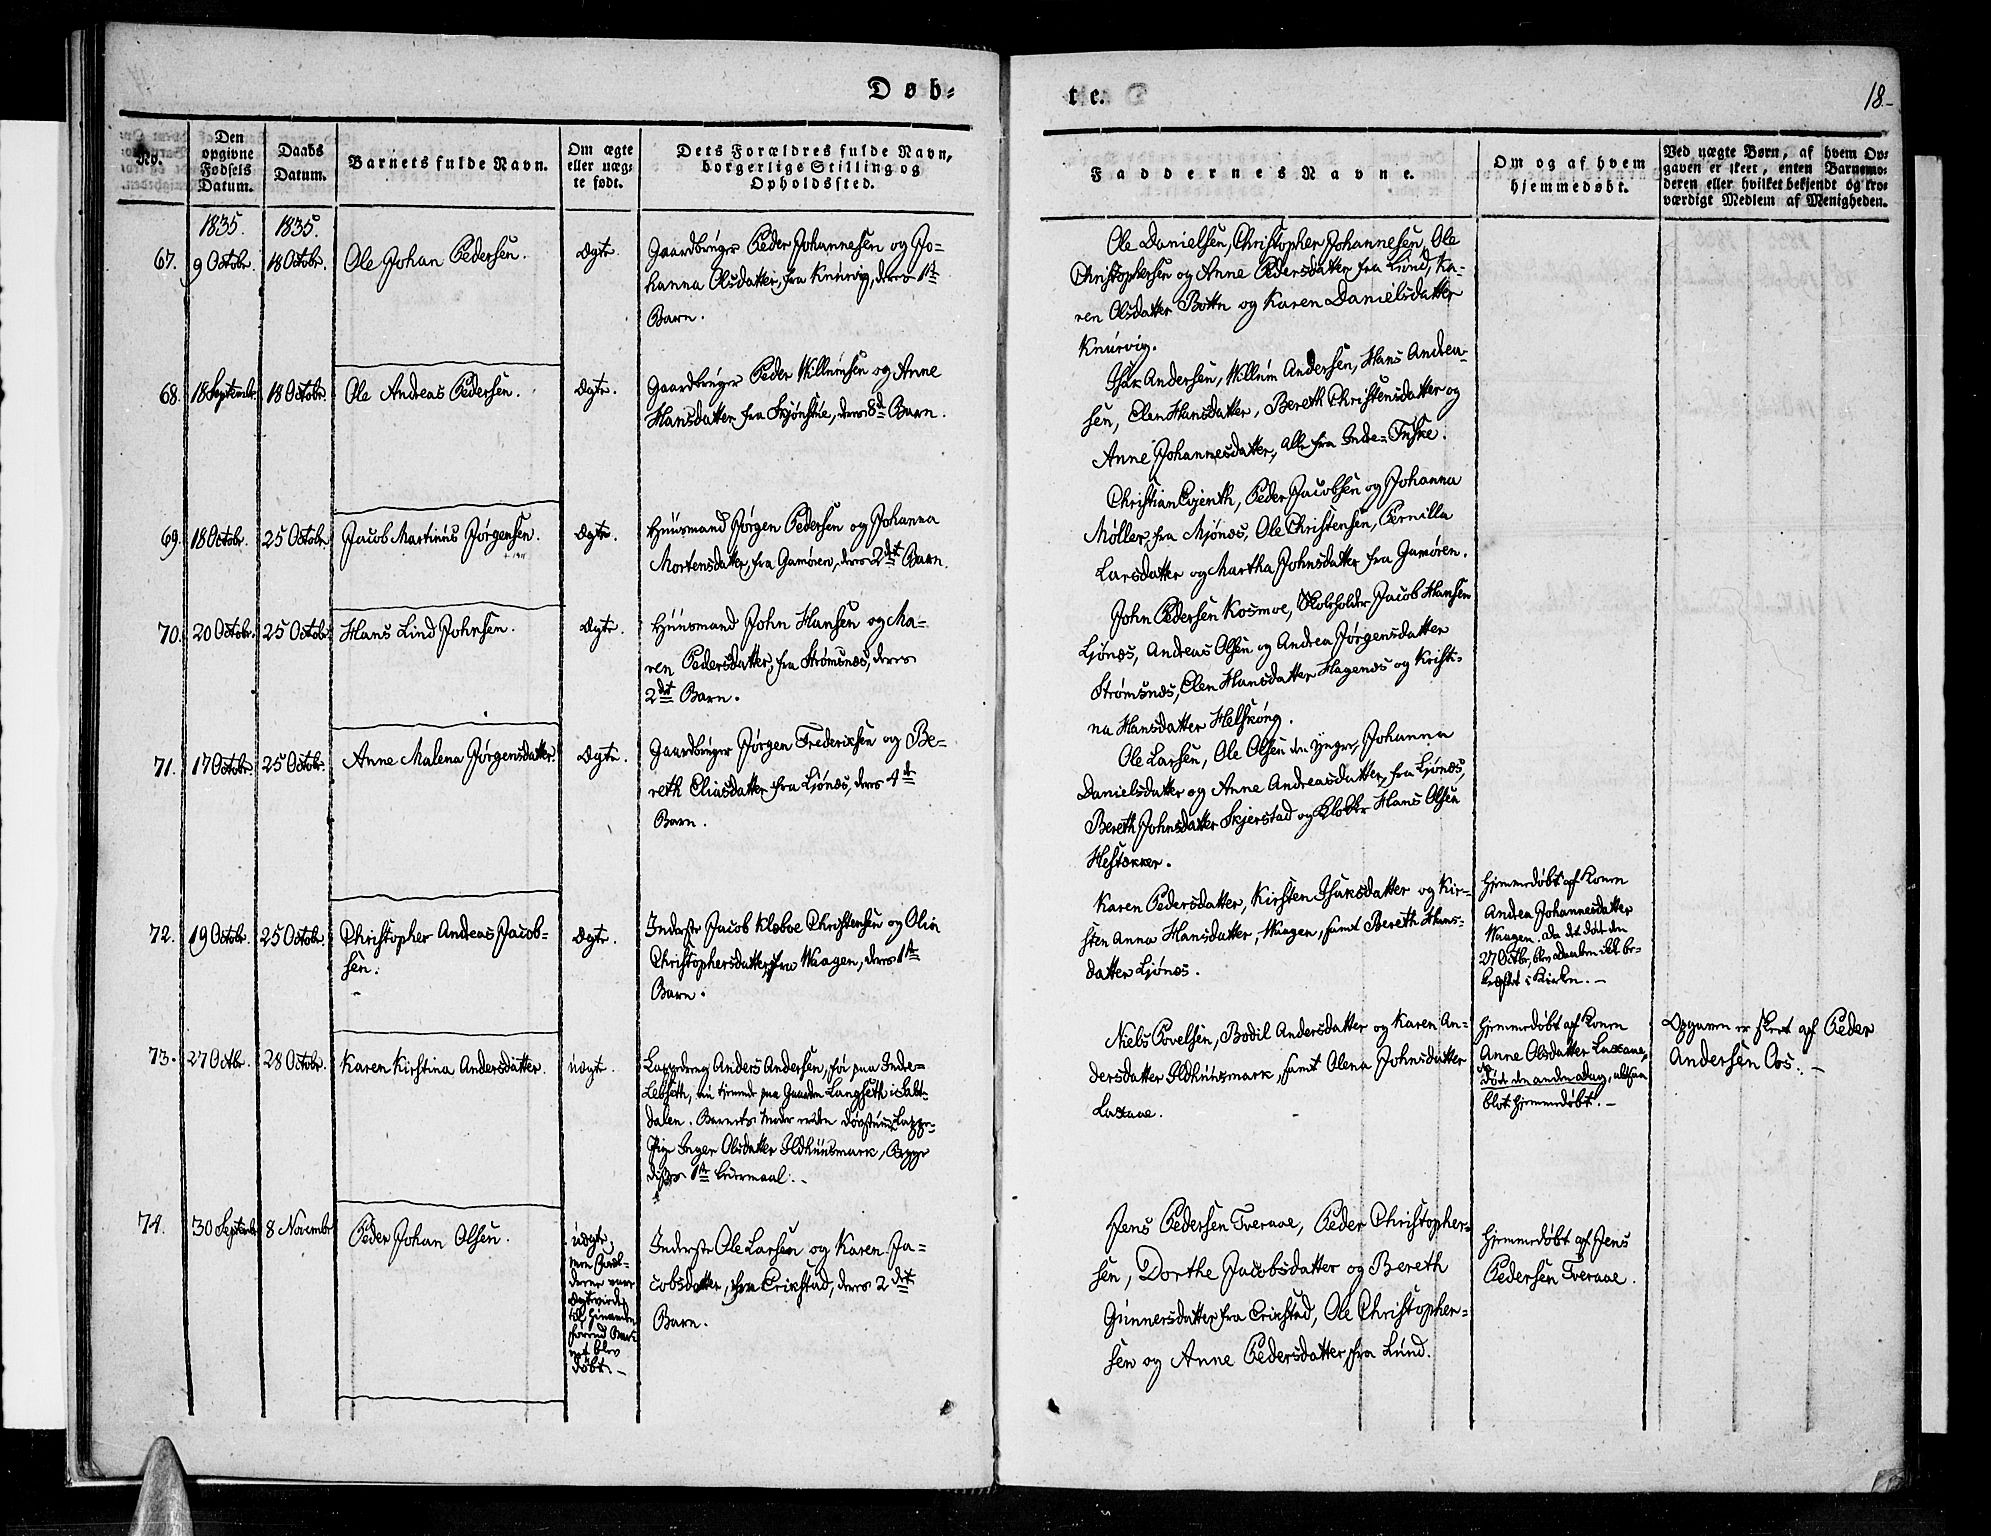 Døb-
te.
18.
No.
Den
opgivne
Fødsels
Datum.
Daabs
Datum.
Barnets fulde Navn.
Om ægte
eller uæg-
te født.
Dets Forældres fulde Navn,
borgerlige Stilling og
Opholdssted.
Faddernes Navne.
Om og af hvem
hjemmedøbt.
Ved uægte Børn, af hvem Op-
gaven er skeet, enten Barnemo-
deren eller hvilket bekjendt og tro-
værdigt Medlem af Menigheden.
1835. 1835.
67. 9 Octobr. 18 Octobr. Ole Johan Pedersen. Ægte.
Gaardbruger Peder Johannesen og Jo-
hanna Olsdatter, fra Knurvig, deres 1ste
Barn.
Ole Danielsen, Christopher Johannesen, Ole
Christophersen og Anne Pedersdatter fra Lund, Ka-
ren Olsdatter Bottn og Karen Danielsdatter
Knurvig.
68. 18 Septembr. 18 Octobr. Ole Andreas Pedersen. Ægte.
Gaardbruger Peder Willumsen og Anne
Hansdatter fra Skjønstue, deres 8de Barn.
Isak Andersen, Willum Andersen, Hans Andrea-
sen, Elen Hansdatter, Bereth Christensdatter og
Anne Johannesdatter, alle fra Inde-Fuske.
69. 18 Octobr. 25 Octobr. Jacob Martinus Jørgensen. Ægte.
Huusmand Jørgen Pedersen og Johanna
Mortensdatter, fra Gamøren, deres 2det Barn.
Christian Evjenth, Peder Jacobsen og Johanna
Møller, fra Mjønæs, Ole Christensen, Pernilla
Larsdatter og Martha Johnsdatter fra Gamøren.
70. 20 Octobr. 25 Octobr. Hans Lind Johnsen. Ægte.
Huusmand John Hansen og Ma-
ren Pedersdatter, fra Strømsnæs, deres
2det Barn.
John Pedersen Kosmoe, Skoleholder Jacob Hansen
Ljønæs, Andreas Olsen og Andrea Jørgensdatter
Strømsnæs, Elen Hansdatter Hagenæs og Kristi-
na Hansdatter Helskóng.
71. 17 Octobr. 25 Octobr. Anne Malena Jørgensdatter. Ægte.
Gaardbruger Jørgen Frederiksen og Be-
reth Eliasdatter fra Ljønæs, deres 4de
Barn.
Ole Larsen, Ole Olsen den yngre, Johanna
Danielsdatter og Anne Andreasdatter, fra Ljønæs,
Bereth Johnsdatter Skjerstad og Klokker Hans Olsen
Hestækker.
72. 19 Octobr. 25 Octobr. Christopher Andreas Jacob-
sen.
Ægte.
Inderste Jacob Klæboe Christensen og Olin
Christophersdatter, fra Waagen, deres 1ste
Barn.
Karen Pedersdatter, Kirsten Isaksdatter og Kir-
sten Anna Hansdatter, Waagen, samt Bereth Hans-
datter Ljønæs.
Hjemmedøbt af Konen
Andrea Johannesdatter
Waagen. Da det døde den
27 Octbr, blev Daaben ikke be-
kræftet i Kirken. -
73. 27 Octbr. 28 Octobr. Karen Kirstina Andersdatter. Uægte.
Lappedreng Anders Andersen, før paa Inde-
Leiseth, nu hjemme paa Gaarden Langseth i Salt-
dalen. Barnets Moder er den døvstumme Lappe-
Pige Inger Olsdatter Ildhuusmark, Begge
disses 1ste Leiermaal. -
Niels Povelsen, Bodil Andersdatter og Karen An-
dersdatter Ildhuusmark, samt Olena Johnsdatter
Laxaae.
Hjemmedøbt af Konen
Anne Olsdatter Laxaae,
døde den anden Dag, altsaa
blot hjemmedøbt. -
Opgaven er skeet af Peder
Andersen Oos. -
74. 30 Septembr. 8 Novembr. Peder Johan Olsen.
Uægte,
men Foræl-
derne vare
ægteviede
til hinanden
førend Bar-
net blev
døbt. -
Inderste Ole Larsen og Karen Ja-
cobsdatter, fra Erikstad, deres 2det
Barn.
Jens Pedersen Tveraae, Peder Christopher-
sen, Dorthe Jacobsdatter og Bereth
Gunnersdatter fra Erikstad, Ole Christopher-
sen og Anne Pedersdatter, fra Lund.
Hjemmedøbt af Jens
Pedersen Tveraae.